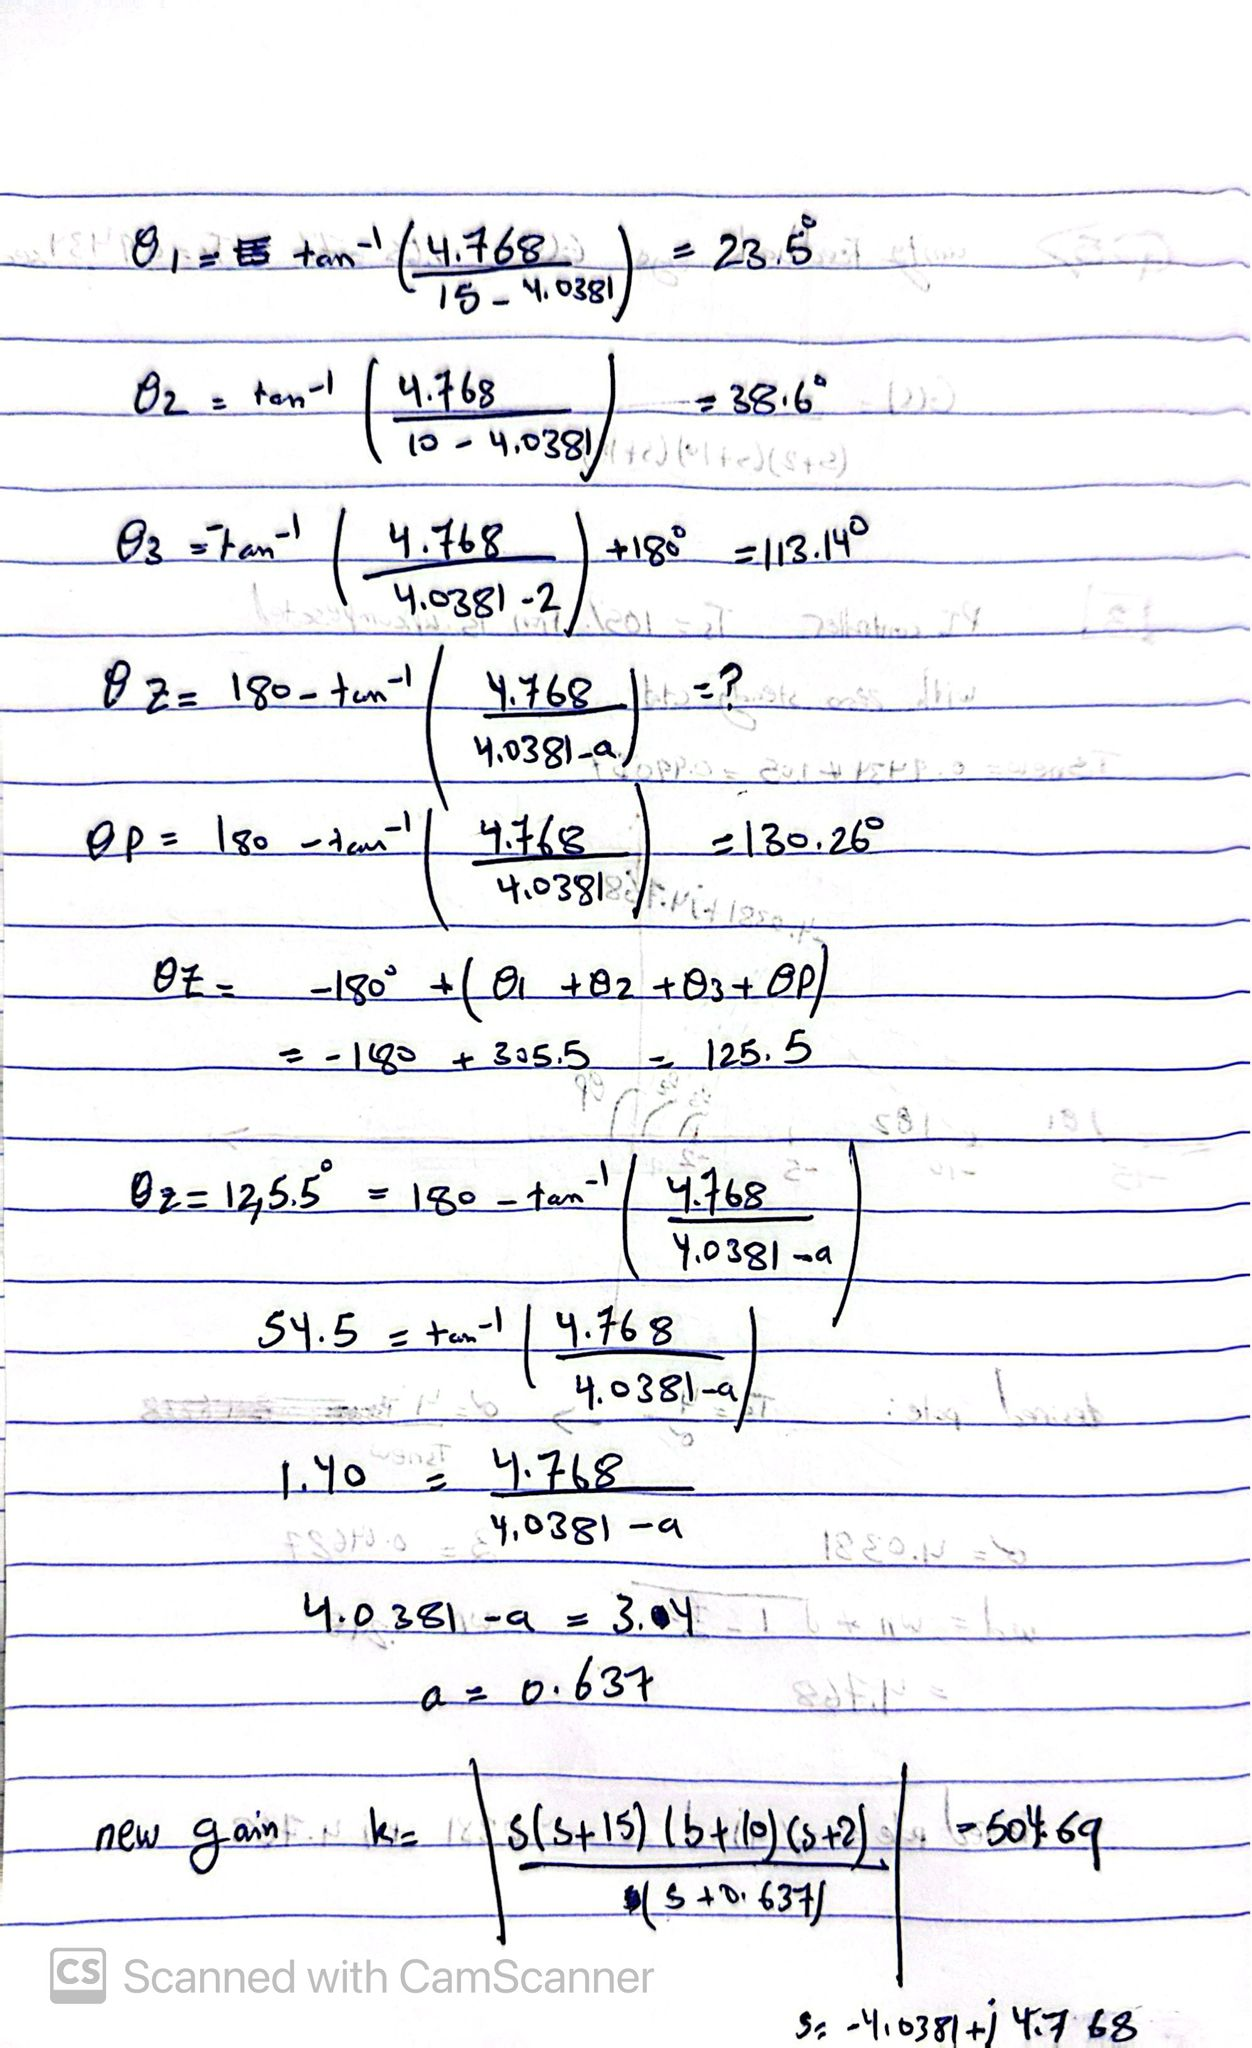 θ1 = tan⁻¹ (4.768 / 15 - 4.0381) = 23.5°
θ2 = tan⁻¹ (4.768 / 10 - 4.0381) = 38.6°
θ3 = -tan⁻¹ (4.768 / 4.0381 - 2) + 180° = 113.14°
θz = 180 - tan⁻¹ (4.768 / 4.0381 - a) = ?
θp = 180 - tan⁻¹ (4.768 / 4.0381) = 130.26°
θz = -180° + (θ1 + θ2 + θ3 + θp)
= -180 + 305.5 = 125.5
θz = 125.5° = 180 - tan⁻¹ (4.768 / 4.0381 - a)
54.5 = tan⁻¹ (4.768 / 4.0381 - a)
1.40 = 4.768 / 4.0381 - a
4.0381 - a = 3.04
a = 0.637
new gain k = | s(s+15)(s+10)(s+2) / (s+0.637) | = 504.69
s = -4.0381 + j 4.768
CS Scanned with CamScanner